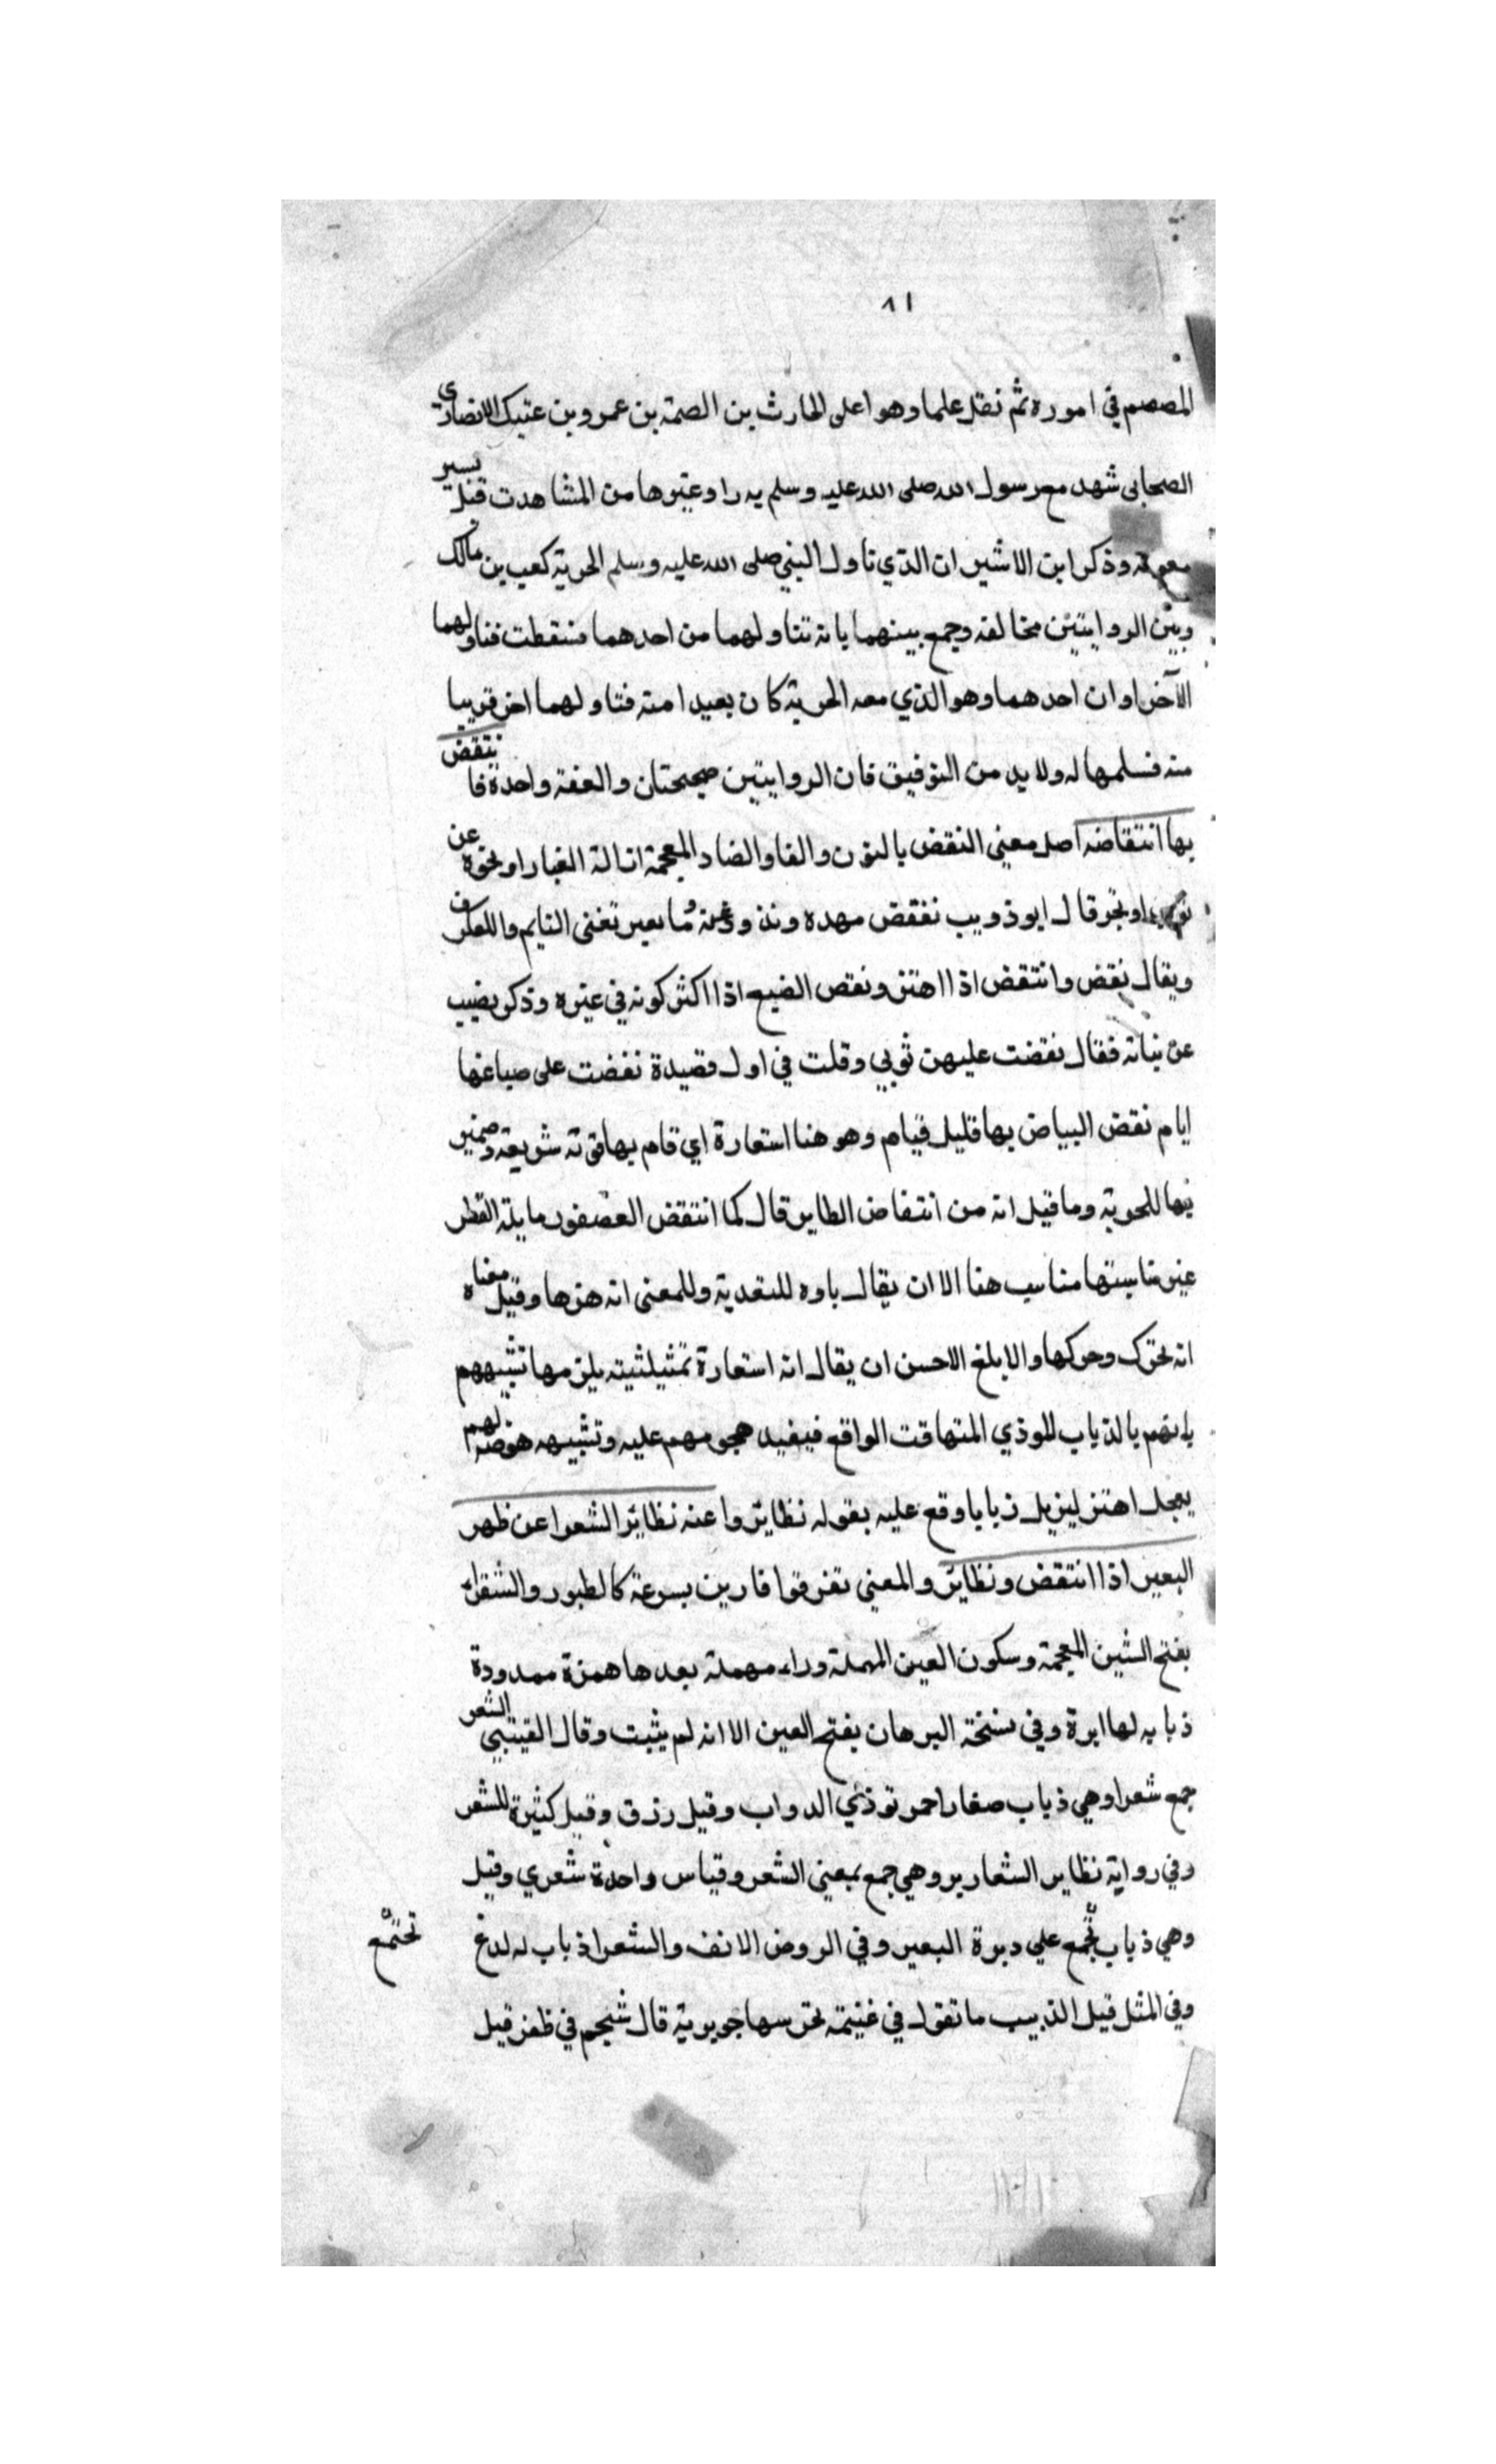 ٨١
المصمم في اموره ثم نقل علما وهو اعلى الحارث بن الصمة بن عمرو بن عتيك الانصاري
الصحابي شهد مع رسول الله صلى الله عليه وسلم بدرا وغيرها من المشاهدت قتل بسير
معونة وذكر ابن الاشير ان الذي ناول النبي صلى الله عليه وسلم الحربة كعب بن مالك
وبين الروايتين مخالفه وجمع بينهما بانه تناولهما من احدهما فسقطت فناولهما
الآخر او ان احدهما وهو الذي معه الحربة كان بعيدا منه فتناولهما اخر قريبا
منه فسلمها له ولا بد من التوفيق فان الروايتين صحيحتان والعفة واحدة فا نتقض
بها انتقاضه اصل معنى النقض بالنون والفا والضاد المعجمة ازالة الغبار او نحوه عن
او نحو قال ابو ذويب نفقض مهده وتغنى النايم واللعكوف
ويقال نقض وانتقض اذا اهتز ونقص الضيع اذا اكثر كونه في غيره وذكر بضيب
عن نباته فقال نقضت عليهن ثوبي وقلت في اول قصيدة نفضت على صباغها
ايام نقض البياض بها قليل قيام وهو هنا استعارة اي قام بها قوته شريعة وضمير
بها للحربة وما قيل انه من انتفاض الطاير قال كما انتقض العصفور ما بلة القطر
غير مناسبتها مناسب هنا الا ان يقال باوه للتعدية وللمعنى انه هزها وقيل معناه
انه تحرك وحركها والابلغ الاحسن ان يقال انه استعارة تمثيلثيته يلزمها تشبيههم
بانهم بالذباب الموذي المتهاقت الواقع فيفيد هجومهم عليه وتشبيهه هو صدا لهم
بمجل اهتز ليزيل ذبابا وقع عليه بقوله نظايروا عنه نظاير الشعرا عن ظهر
البعير اذا انتقض ونظاير والمعنى تفرقوا فارين بسرعة كالطيور والشقراء
بفتح الشين المعجمة وسكون العين المهملة وراء مهملة بعدها همزة ممدودة
ذبابه لها ابرة وفي نسخة البرهان بفتح العين الا انه لم يثبت وقال القيتبي الشعر
جمع شعرا وهي ذباب صغار احمر توذي الدواب وقيل رزق وقيل كثيرة الشعر
وفي رواية نظاير الشعارير وهي جمع بمعنى الشعر وقياس واحدة شعري وقيل
وهي ذباب تجمع علي دبرة البعير وفي الروض الانف والشعرا ذباب له لدغ
تجتمع
وفي المثل قيل الذبيب ما تقول في غنيمة تحرسها جويرية قال شيجم في ظفر قيل